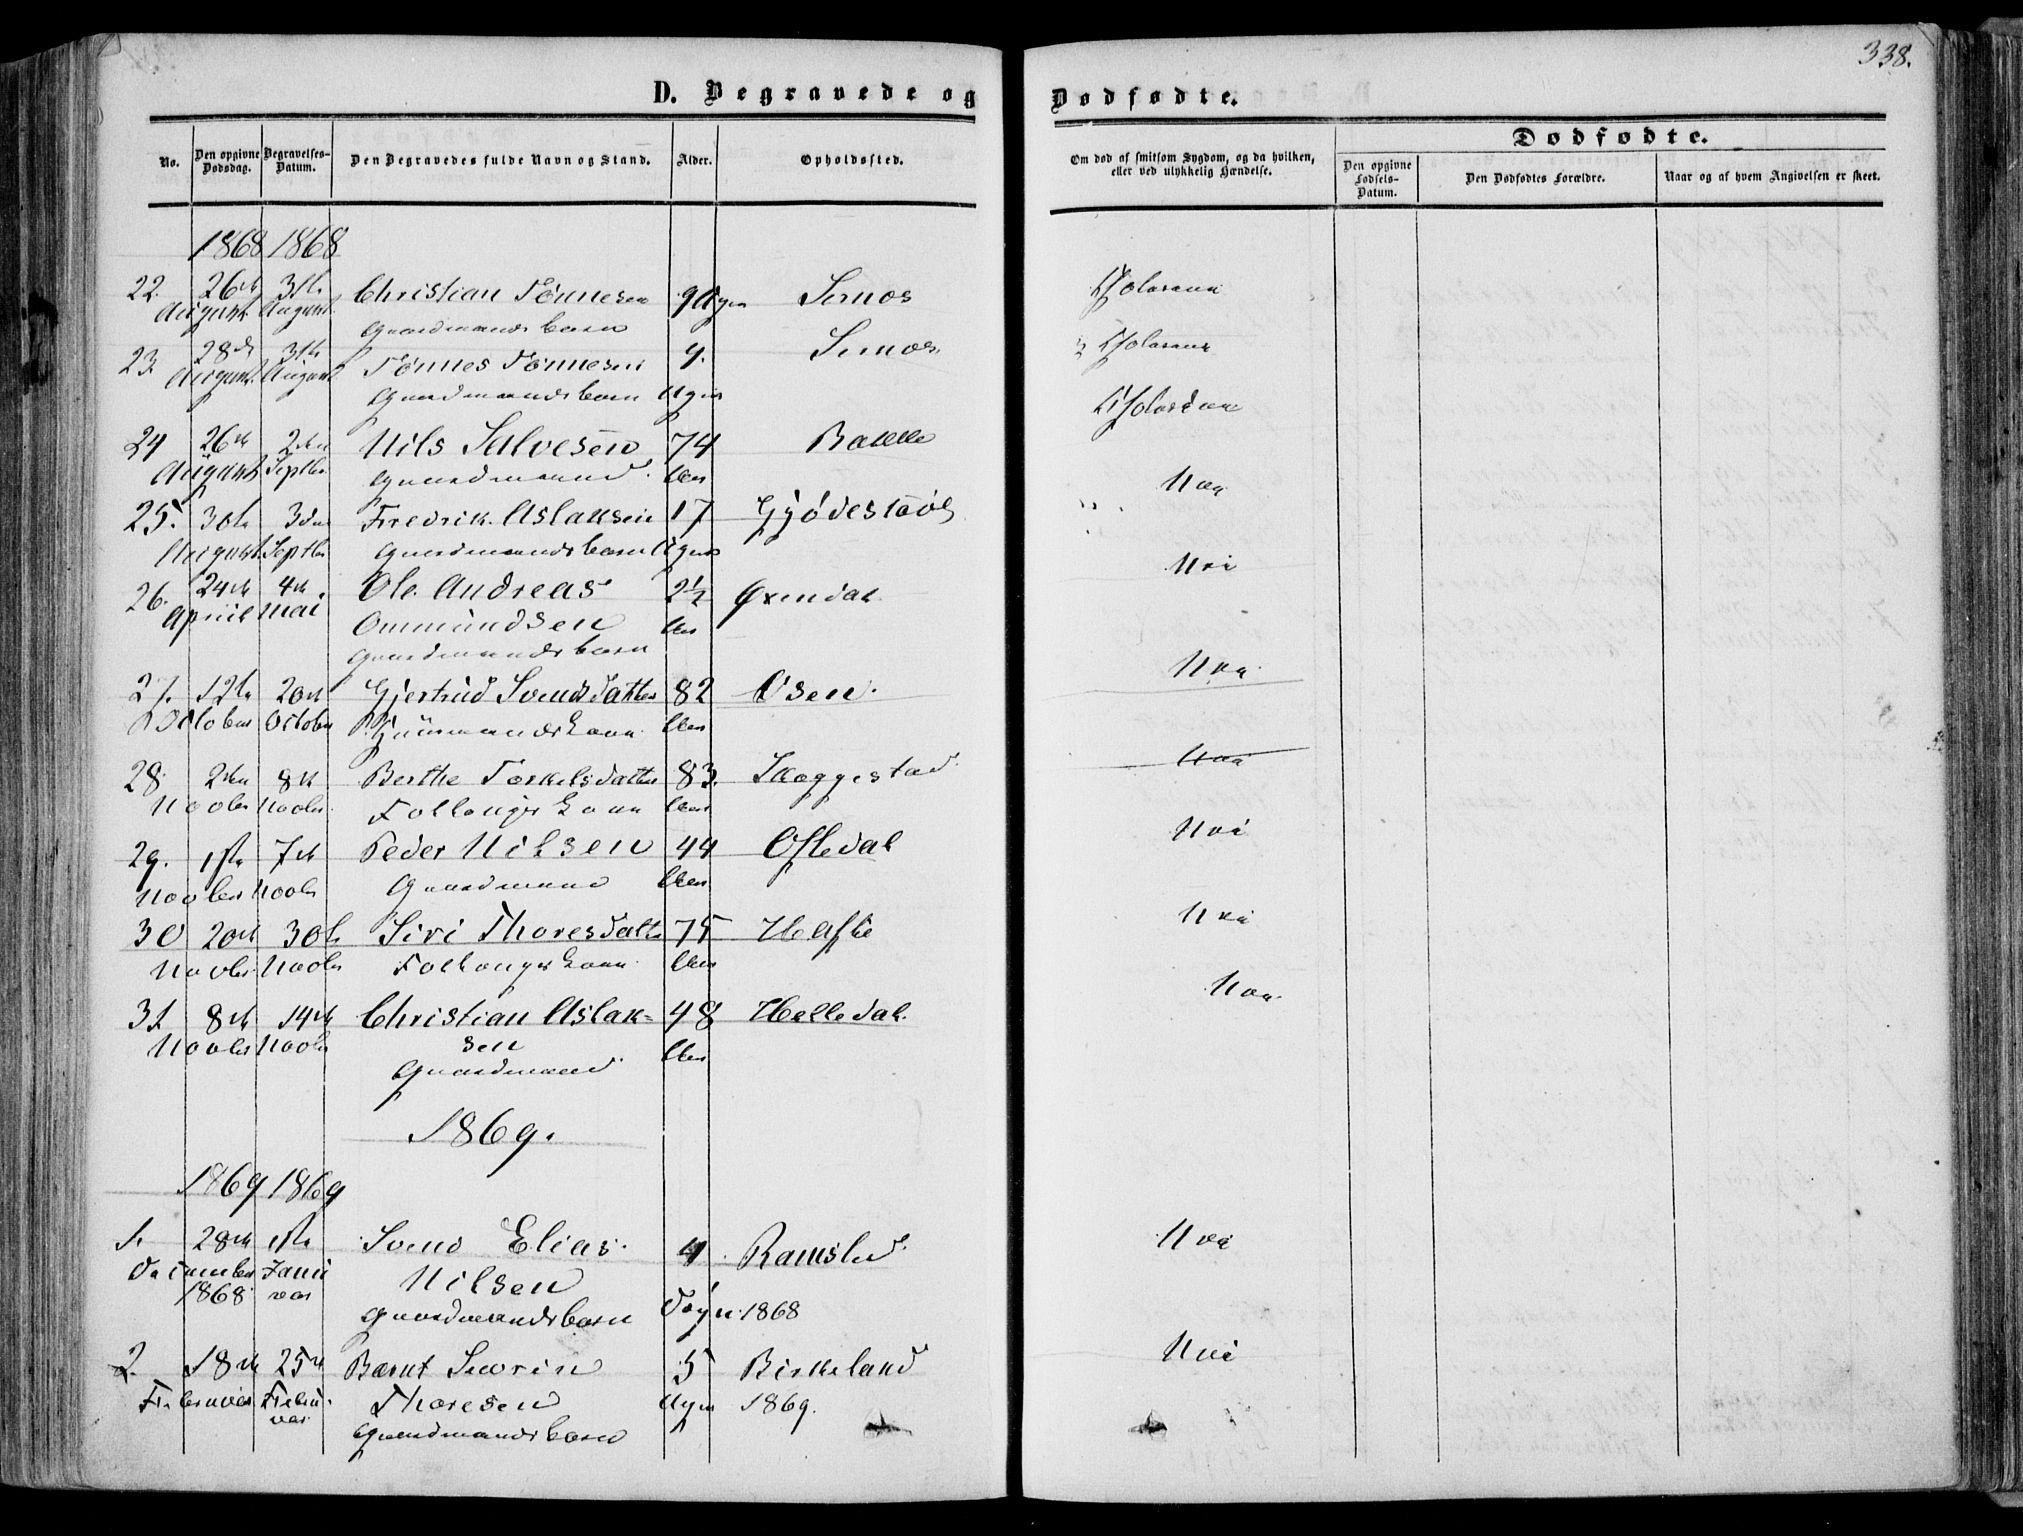 338.
D. Begravede og Dødfødte.
Dødfødte.
No.
Den opgivne Dødsdag.
Begravelses-Datum.
Den Begravedes fulde Navn og Stand.
Alder.
Opholdssted.
Om død af smitsom Sygdom, og da hvilken,
eller ved ulykkelig Hændelse.
Den opgivne
Fødsels-
Datum.
Den Dødfødtes Forældre.
Naar og af hvem Angivelsen er skeet.
1868 1868
22. 26de 31te Christian Tönnesen 9 Uger Sirnæs
August August Gaardmands barn
23. 28de 31te Tönnes Tönnesen 9. Sirnæs
August August Gaardmands barn Uger
24 26de 2den Nils Salvesen 74
August Septbr Gaardmand Aar
25. 30te 3die Fredrik Aslaksen 17 Gyödestööl
August Septbr Gaardmands barn Uger
26. 24de 4de Ole Andreas 2½ Øxendal
April Mai Ommundsen Aar
Gaardmands barn
27. 12te 20de Gjertrud Svends datter 82 Osen.
October October kone Aar
28. 2den 8de Berthe Torkelsdatter 83. Skoggestad
Novbr Novbr kone Aar
29. 1ste 7de Peder Nilsen 44 Oftedal
Novber Novbr Gaardmand Aar
30 20de 30te Siri Thoresdatter 75 Hafte
Novbr Novbr kone Aar
31 8de 14de Christian Aslak= 48 Helledal.
Novbr Novbr sen Aar
Gaardmand
1869.
1869 1869
1. 28de 1ste Svend Elias 4 Ramsled
December Janu Nilsen
1868 var Gaardmandsbarn Dage 1868
2. 18de 25de Bærnt Severin 5 Birkeland
Februar Febru- Thoresen Uger 1869.
var Gaardmandsbarn
Nei
Nei
Nei
Nei
Nei
Nei
Nei
Nei
Nei